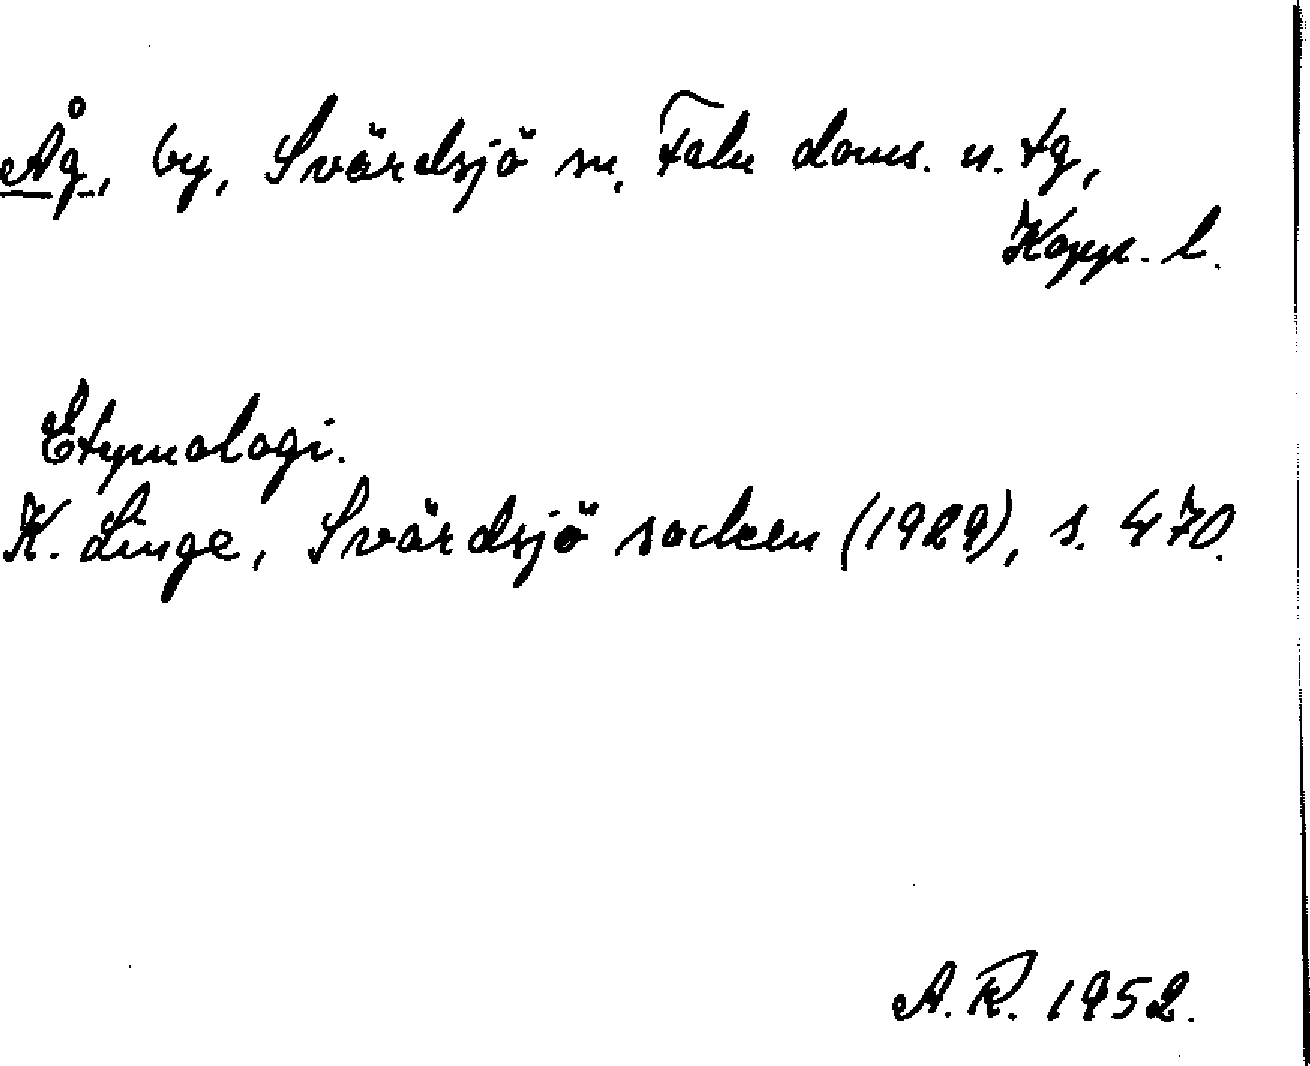 Åg, by, Svärdsjö sn, Falu doms. o. tg,
Kopp. l.
Etymologi.
K. Linge, Svärdsjö socken (1929), s. 470.
A. R. 1952.